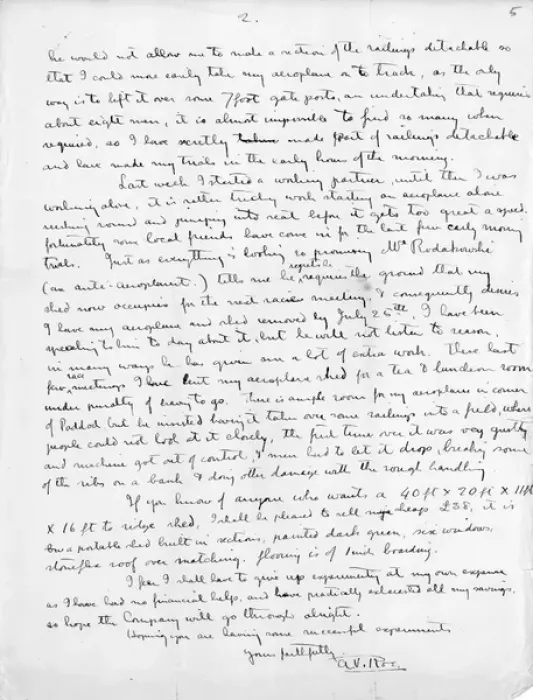 2.
5
he would not allow me to make a section of the railings detachable so
that I could more easily take my aeroplane on to track, as the only
way is to lift it over some 7 foot gate posts, an undertaking that requires
about eight men, it is almost impossible to find so many when
required, so I have secretly taken made part of railings detachable
and have made my trials in the early hours of the morning.
Last week I started a working partner, until then I was
working alone, it is rather tricky work starting an aeroplane alone
rushing round and jumping into seat before it gets too great a speed.
fortunately some local friends have come in for the last few early morning
trials. Just as everything is looking so promising Mr Rodakowski
(an anti-aeroplanist.) tells me he requires the ground that my
shed now occupies for the next race meeting, & consequently desires
I have my aeroplane and shed removed by July 25th, I have been
speaking to him to day about it, but he will not listen to reason.
in many ways he has given me a lot of extra work. These last
few race meetings I have lent my aeroplane shed for a tea & luncheon room
under penalty of having to go. There is ample room for my aeroplane in corner
of Paddock but he insisted having it taken over some railings into a field, where
people could not look at it closely, the first time over it was very gusty
and machine got out of control, & men had to let it drop, breaking some
of the ribs on a bank & doing other damage with the rough handling.
If you know of anyone who wants a 40ft x 20ft x 11ft
x 16 ft to ridge shed, I shall be pleased to sell mine cheap £38, it is
a portable shed built in sections, painted dark green, six windows,
stoneflex roof over matching. flooring is of 1 inch boarding.
I fear I shall have to give up experimenting at my own expense
as I have had no financial help, and have practically exhausted all my savings,
so hope the Company will go through alright.
Hoping you are having some successful experiments
Yours faithfully
A.V. Roe